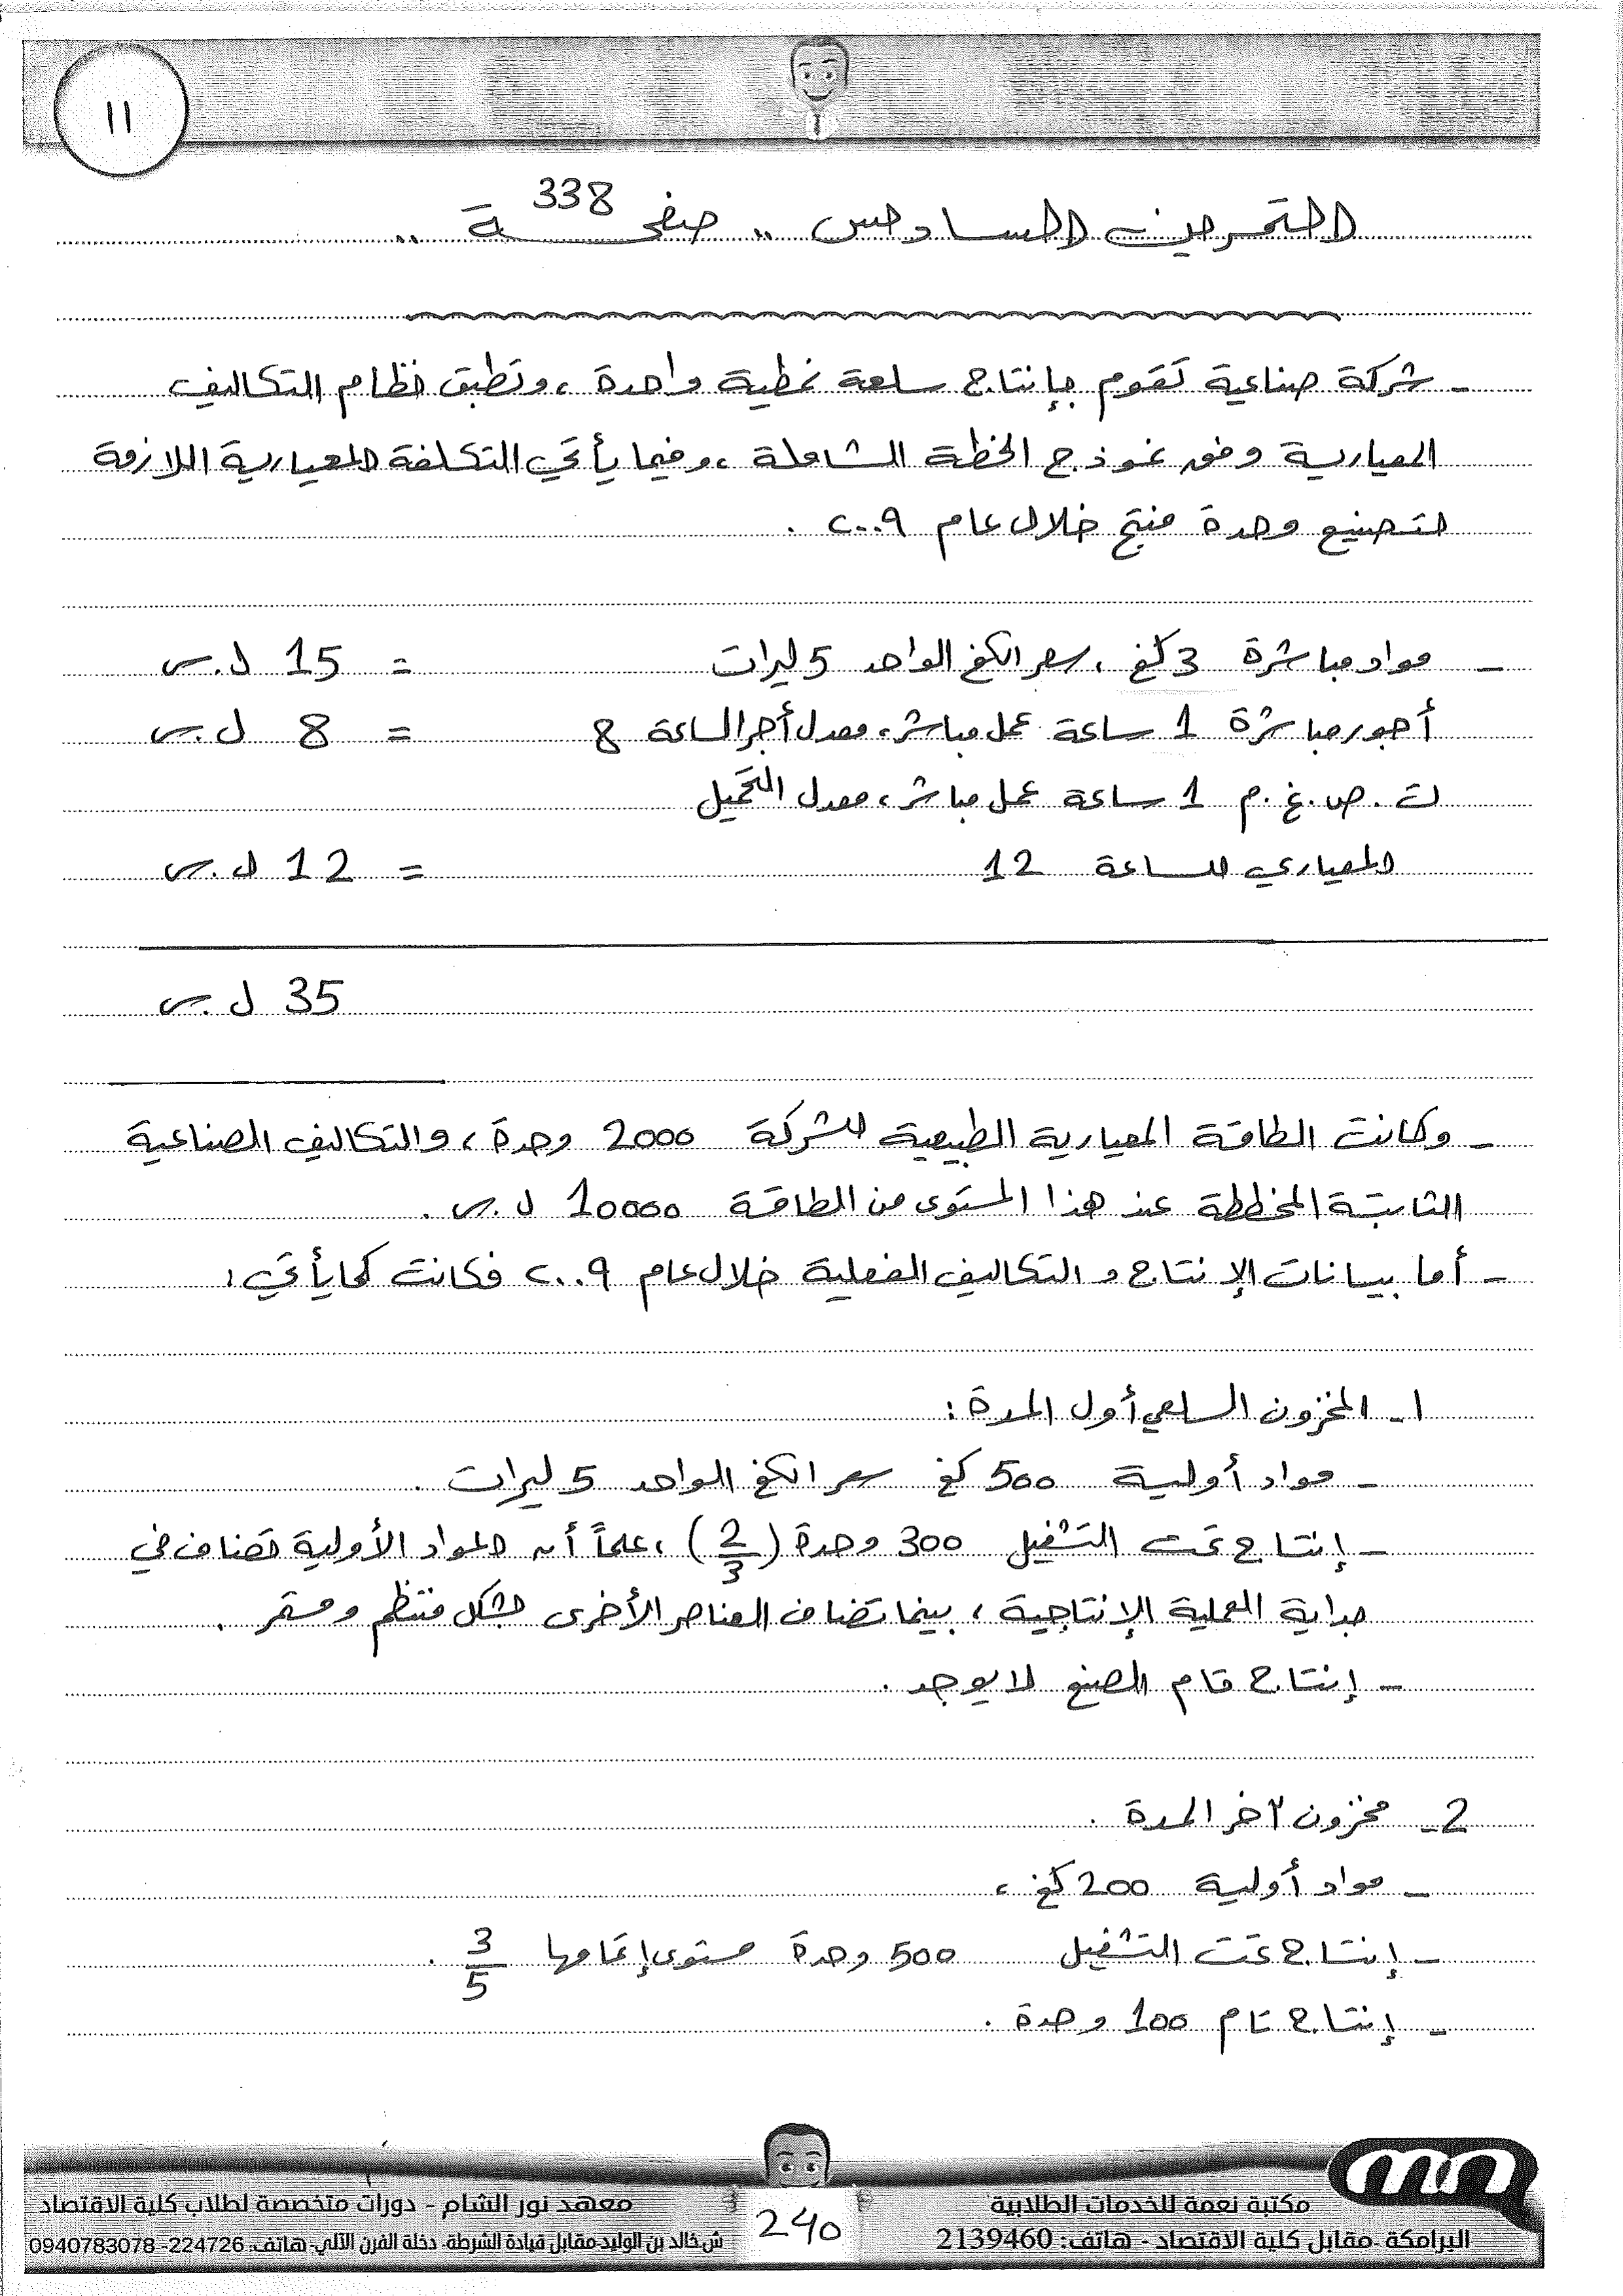 ١١
التمرين السادس .. صفحة 338 ..
- شركة صناعية تقوم بإنتاج سلعة نمطية واحدة ، وتطبق نظام التكاليف
المعيارية وفق نموذج الخطة الشاملة ، وفيما يأتي التكلفة المعيارية اللازمة
لتصنيع وحدة منتج خلال عام ٢٠٠٩ .
- مواد مباشرة 3 كغ ، سعر الكغ الواحد 5 ليرات = 15 ل.س
أجور مباشرة 1 ساعة عمل مباشر ، معدل أجر الساعة 8 = 8 ل.س
ت . ص . غ . م 1 ساعة عمل مباشر ، معدل التحميل
المعياري للساعة 12 = 12 ل.س
35 ل.س
- وكانت الطاقة المعيارية الطبيعية للشركة 2000 وحدة ، والتكاليف الصناعية
الثابتة المخططة عند هذا المستوى من الطاقة 10000 ل.س .
- أما بيانات الإنتاج و التكاليف الفعلية خلال عام ٢٠٠٩ فكانت كما يأتي :
١- المخزون السلعي أول المدة :
- مواد أولية 500 كغ سعر الكغ الواحد 5 ليرات .
- إنتاج تحت التشغيل 300 وحدة (2/3) ، علماً أن المواد الأولية تضاف في
بداية العملية الإنتاجية ، بينما تضاف العناصر الأخرى بشكل منتظم ومستمر .
- إنتاج تام الصنع لا يوجد .
2- مخزون آخر المدة .
- مواد أولية 200 كغ ،
- إنتاج تحت التشغيل 500 وحدة مستوى إتمامها 3/5 .
- إنتاج تام 100 وحدة .
مكتبة نعمة للخدمات الطلابية
البرامكة -مقابل كلية الاقتصاد - هاتف: 2139460
240
معهد نور الشام - دورات متخصصة لطلاب كلية الاقتصاد
ش خالد بن الوليد-مقابل قيادة الشرطة- دخلة الفرن الآلي- هاتف: 224726- 0940783078